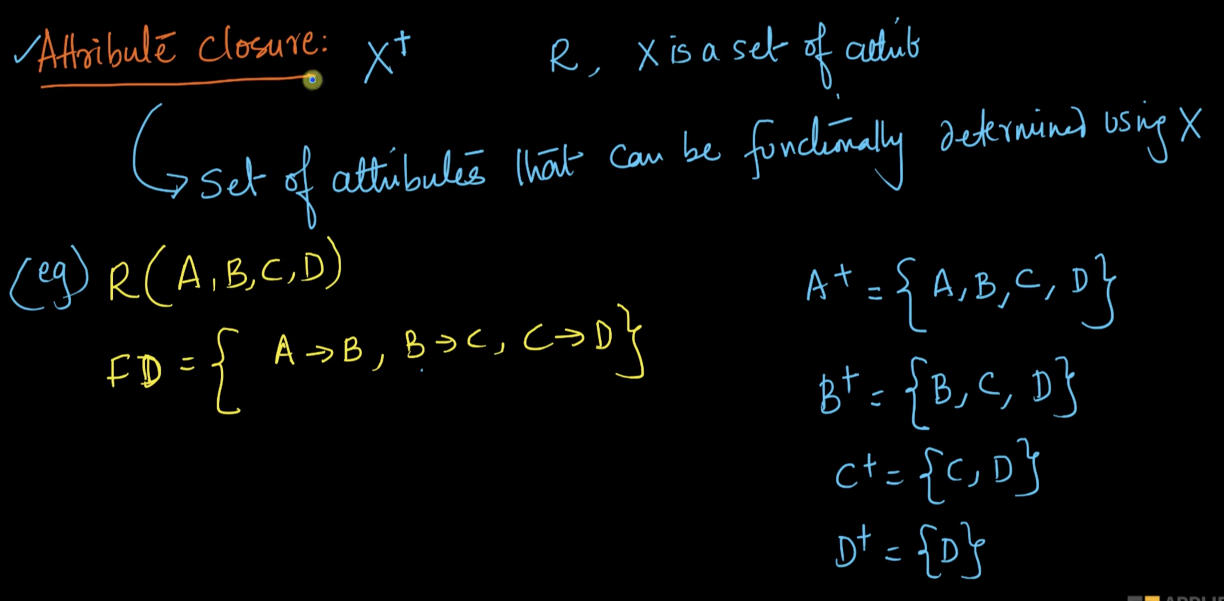 ✓Attribute closure: X⁺ R, X is a set of attrib
↳ set of attributes that can be functionally determined using X
(eg) R(A,B,C,D)
FD = { A→B, B→C, C→D}
A⁺ = {A,B,C,D}
B⁺ = {B,C,D}
C⁺ = {C,D}
D⁺ = {D}